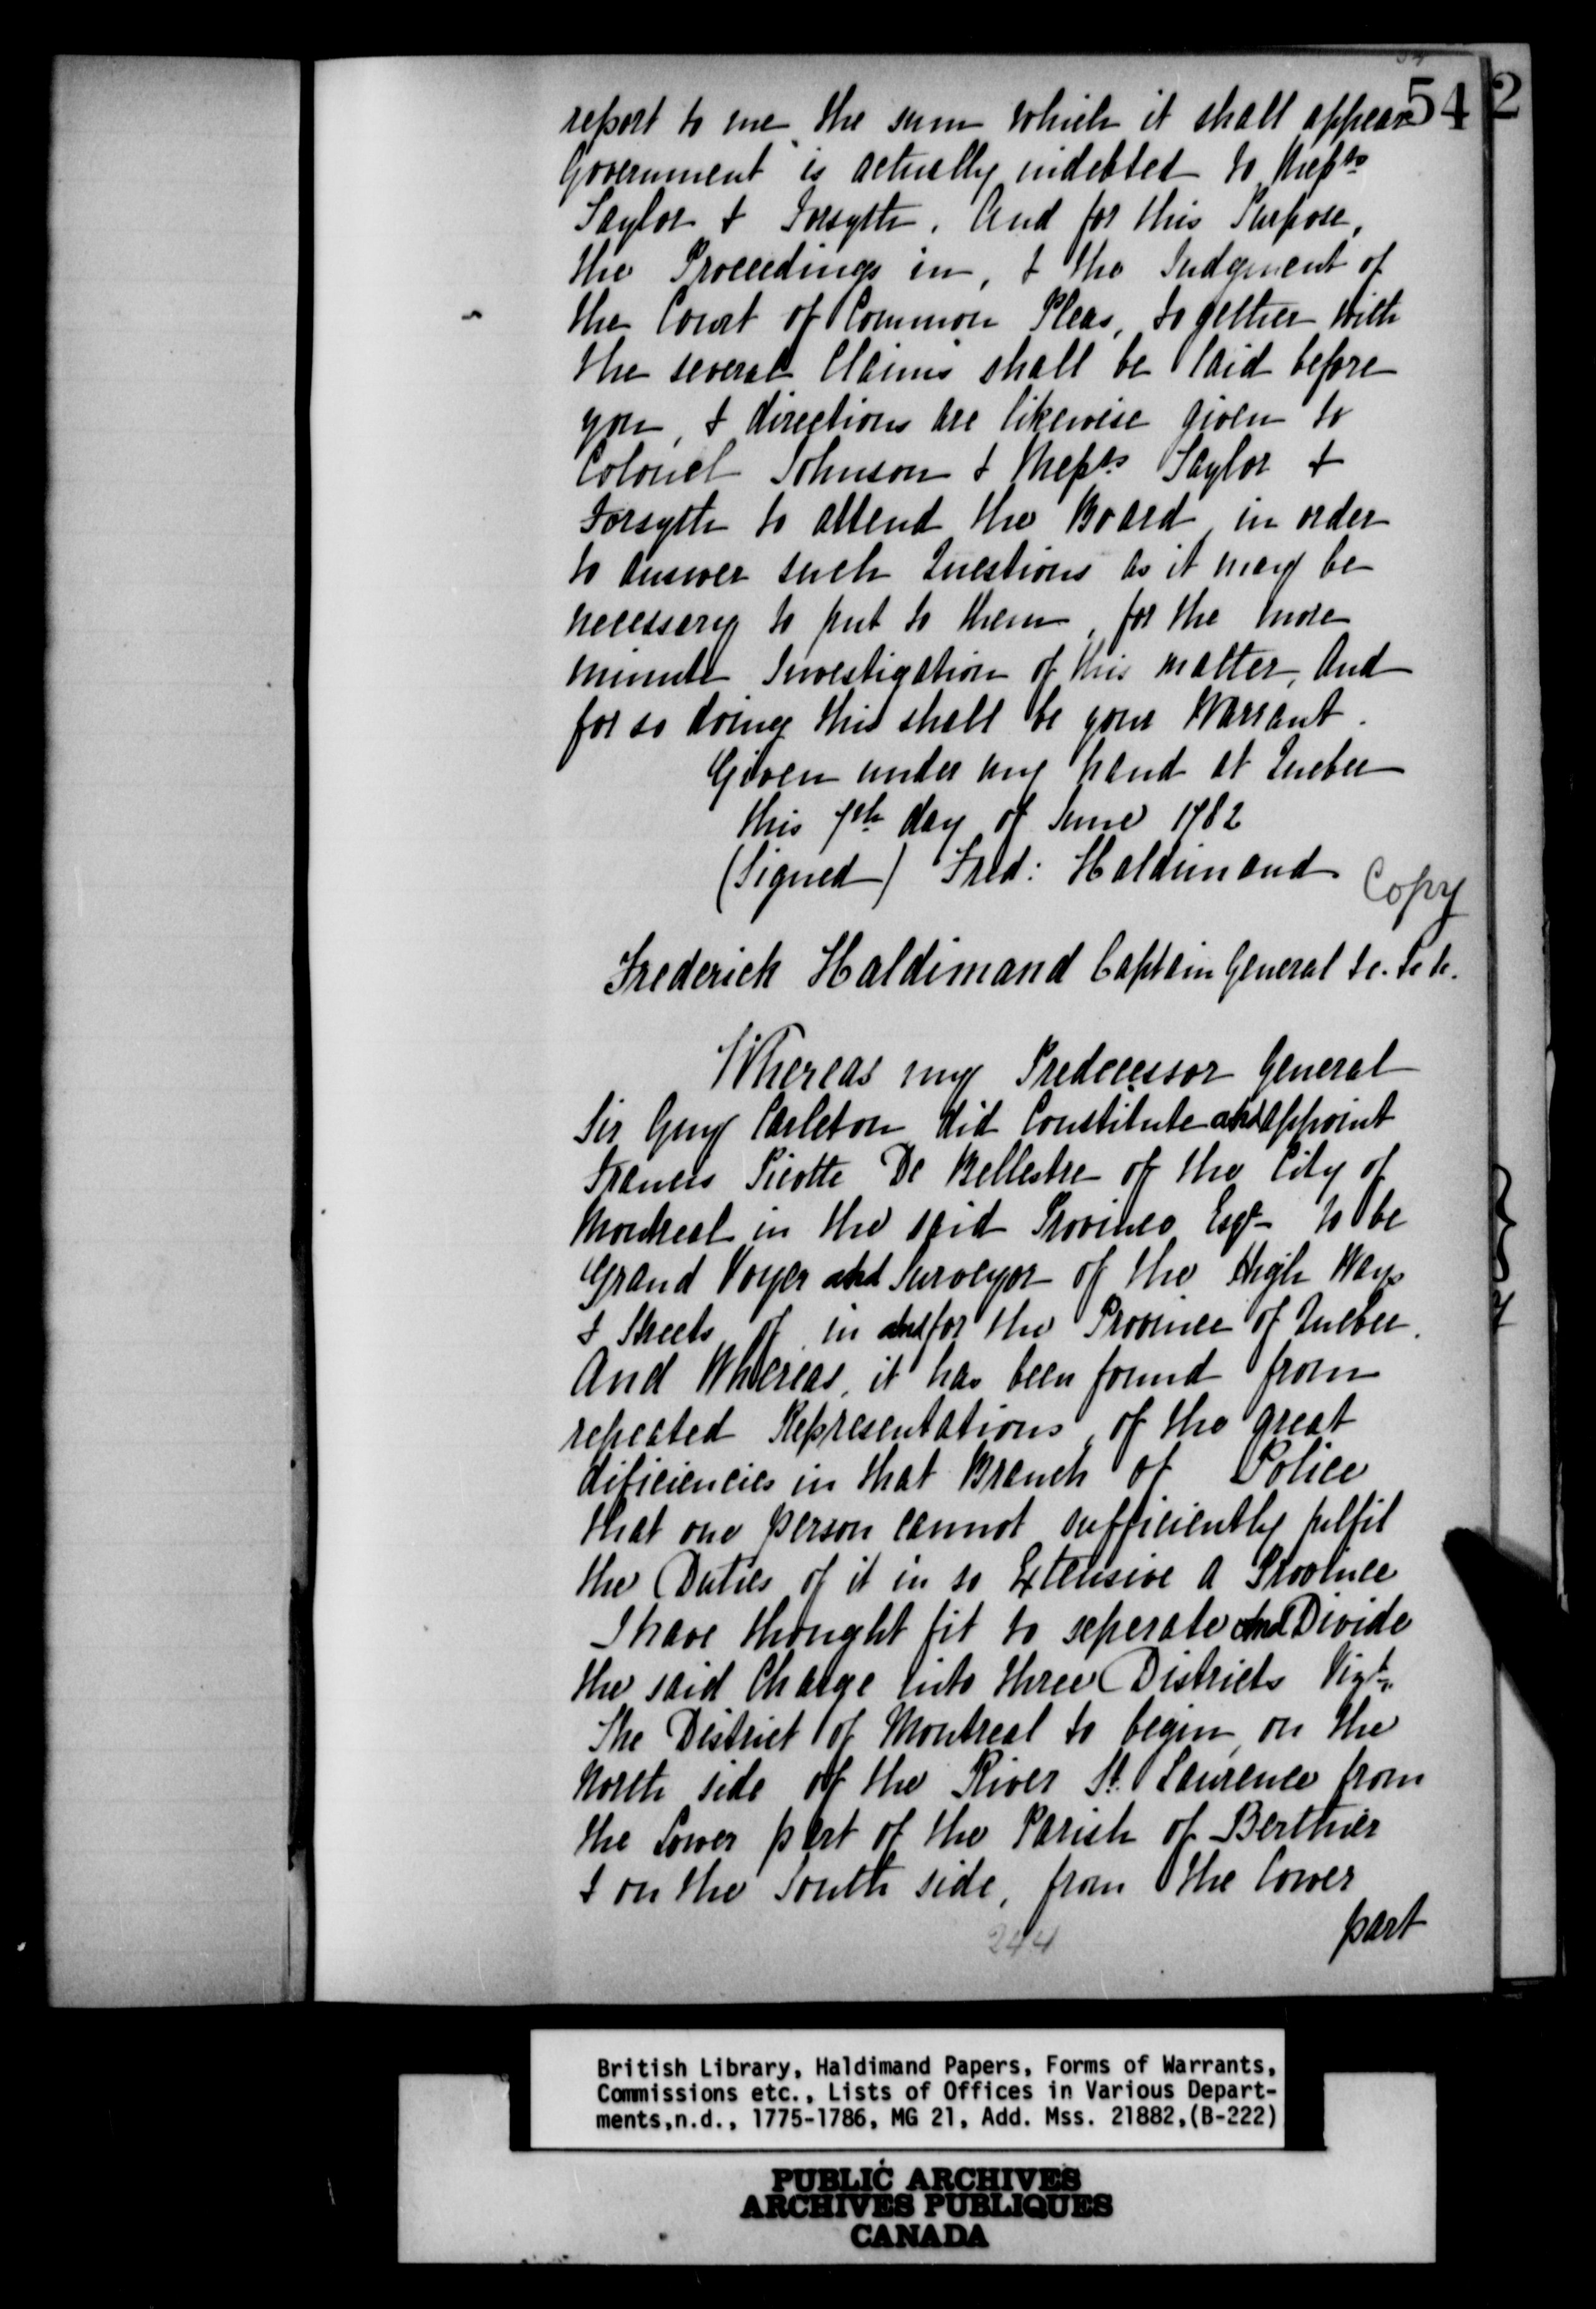 54
report to me, the sum which it shall appear
Government is actually indebted to Messrs
Taylor & Forsyth. And for this Purpose,
the Proceedings in, & the Judgment of
the Court of Common Pleas, together with
the several Claims shall be laid before
you, & directions are likewise given to
Colonel Johnson & Messrs Taylor &
Forsyth to attend the Board, in order
to answer such Questions as it may be
necessary to put to them, for the more
minute Investigation of this matter, And
for so doing this shall be your Warrant.
Given under my hand at Quebec
this 7th day of June 1782
(Signed) Fred: Haldimand
Copy
Frederick Haldimand Captain General &c. &c &c.
Whereas my Predecessor General
Sir Guy Carleton did Constitute and appoint
Francis Picotte De Bellestre of the City of
Montreal in the said Province Esqr to be
Grand Voyer and Surveyor of the High Ways
& Streets of, in and for the Province of Quebec.
And Whereas, it has been found from
repeated Representations, of the great
dificiencies in that Branch of Police
that one person cannot sufficiently fulfil
the Duties of it in so Extensive a Province
I have thought fit to seperate and Divide
the said Charge into three Districts Vizt.
The District of Montreal to begin, on the
North side of the River St. Laurence from
the Lower part of the Parish of Berthier
& on the South side, from the lower
part
244
2
British Library, Haldimand Papers, Forms of Warrants,
Commissions etc., Lists of Offices in Various Depart-
ments,n.d., 1775-1786, MG 21, Add. Mss. 21882,(B-222)
PUBLIC ARCHIVES
ARCHIVES PUBLIQUES
CANADA